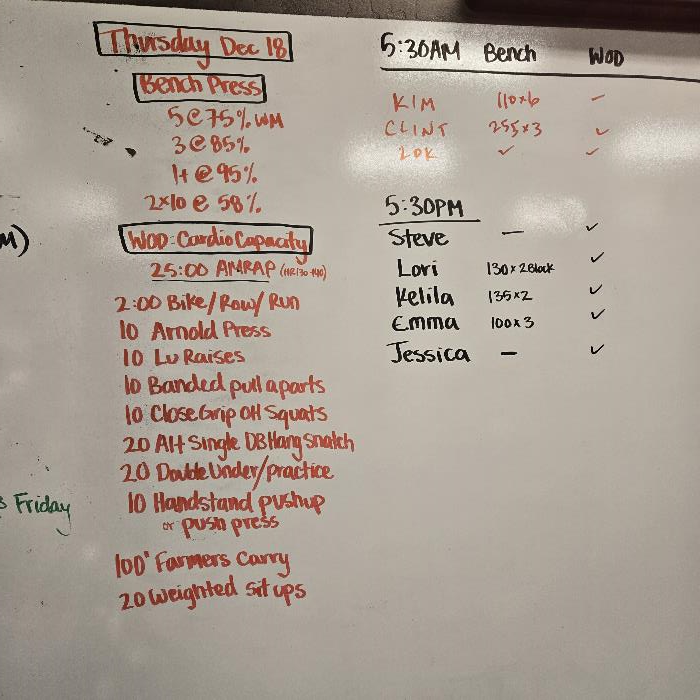 Thursday Dec 18
Bench Press
5@75% WM
3@85%
1+@95%
2x10@58%
WOD: Cardio Capacity
25:00 AMRAP (HR130-140)
2:00 Bike/Row/Run
10 Arnold Press
10 Lu Raises
10 Banded pull aparts
10 Close Grip OH Squats
20 Alt Single DB Hang Snatch
20 Double Under/practice
10 Handstand pushup
or push press
100' Farmers Carry
20 Weighted Sit ups
5:30AM Bench WOD
KIM 110x6 –
CLINT 255x3 ✓
LOK ✓ ✓
5:30PM
Steve – ✓
Lori 130x2 Block ✓
Kelila 135x2 ✓
Emma 100x3 ✓
Jessica – ✓
M)
Friday